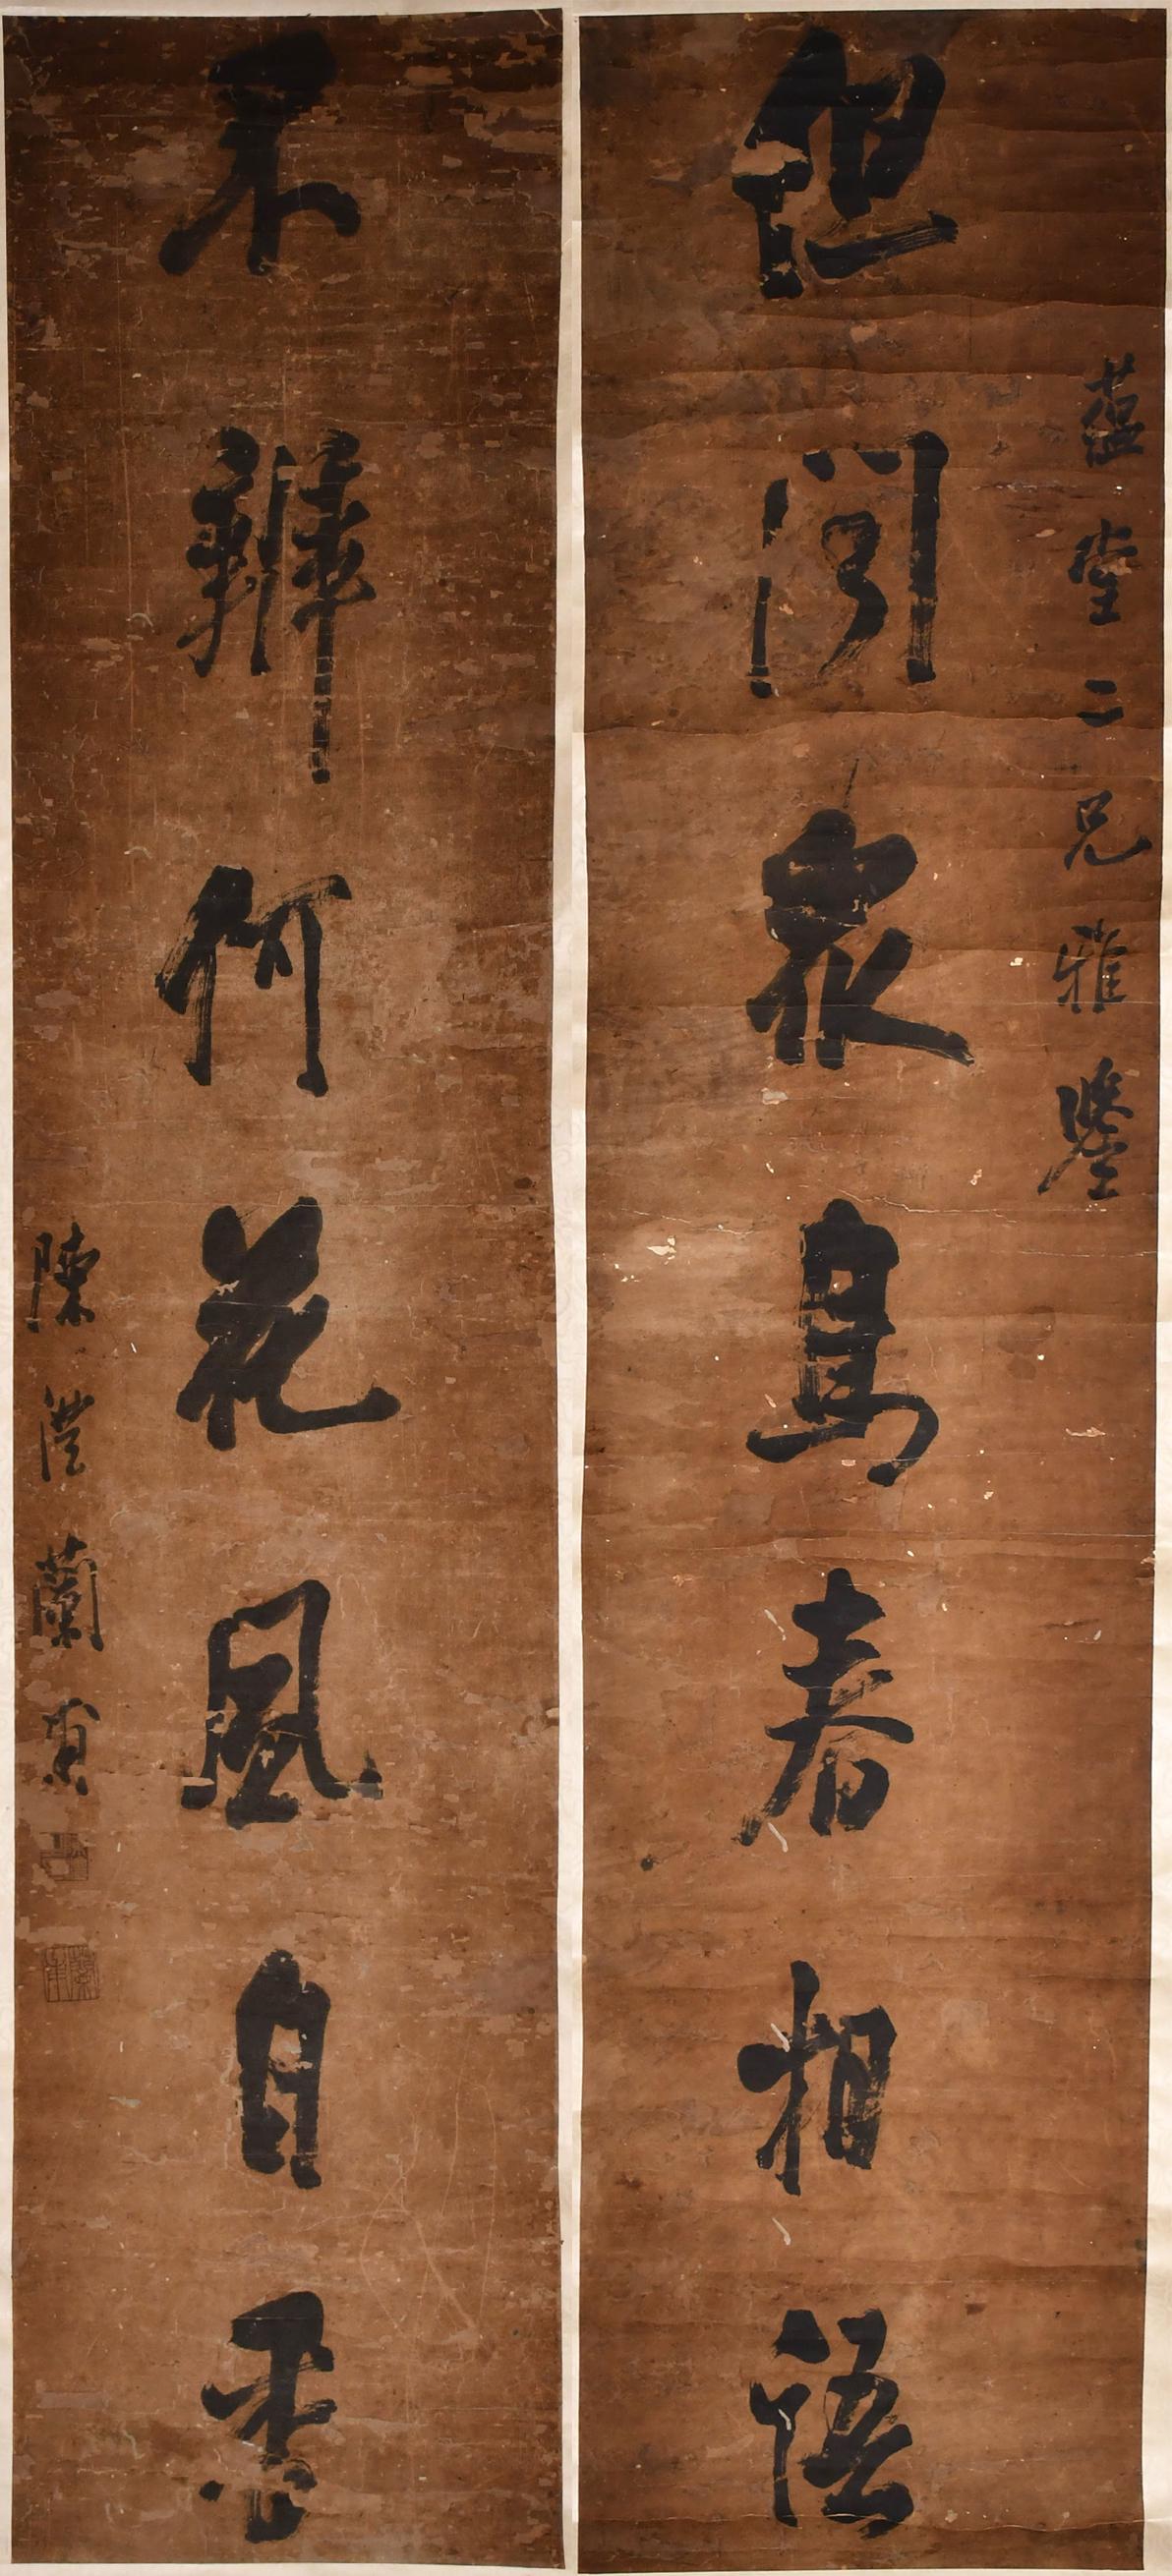 蕴堂二兄雅鑒
但聞衆鳥春相語
不辨何花風自香
陳澧蘭甫